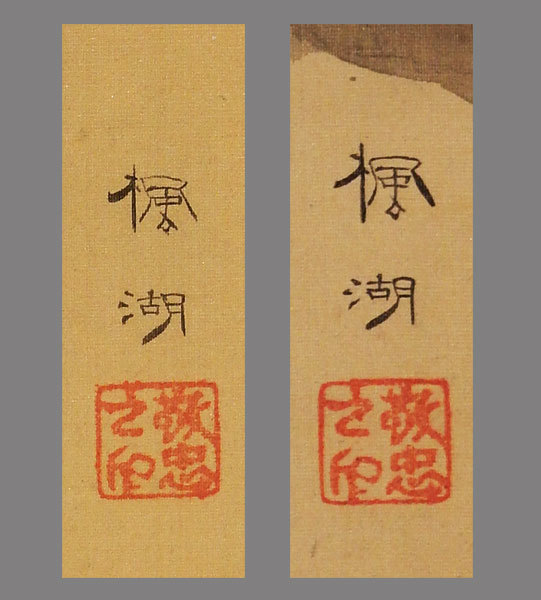 楓湖
敬忠
之印
楓湖
敬忠
之印